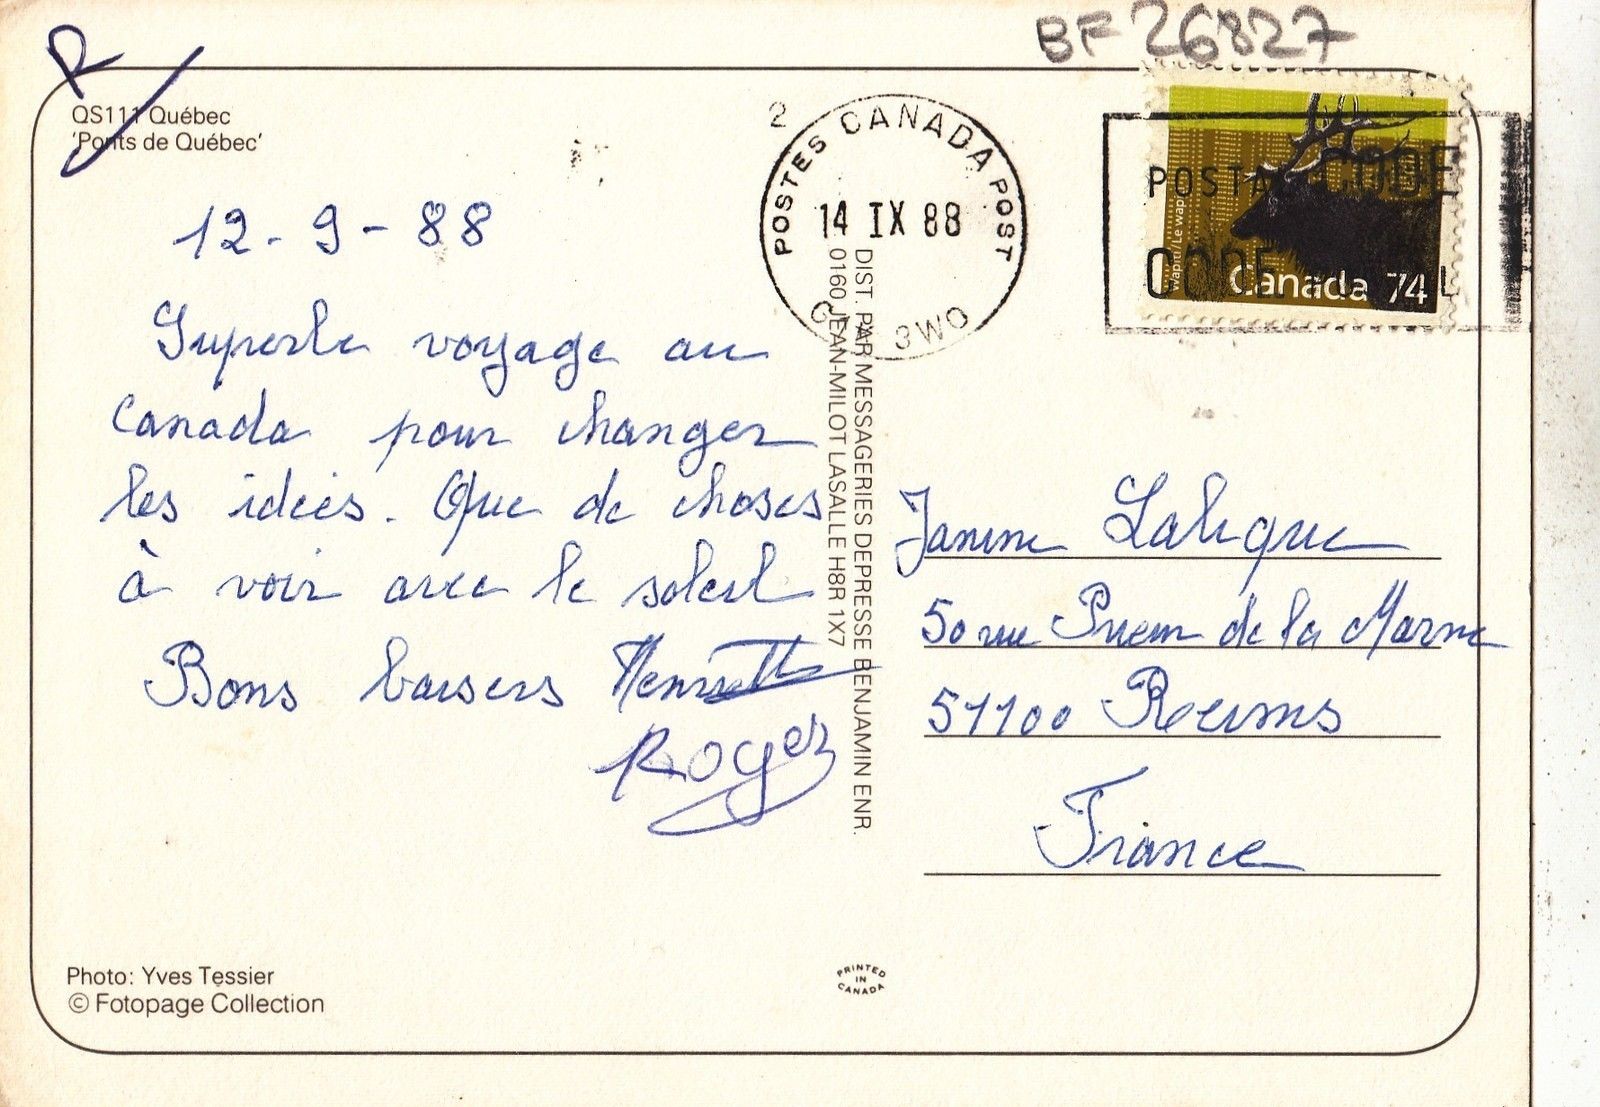 BF 26827
R
QS111 Québec
'Ponts de Québec'
12-9-88
Superbe voyage au
Canada pour changer
les idées. Que de choses
à voir avec le soleil
Bons baisers Henriette
Roger
Photo: Yves Tessier
© Fotopage Collection
2
POSTES CANADA POST
14 IX 88
3W0
DIST. PAR MESSAGERIES DEPRESSE BENJAMIN ENR.
0160 JEAN-MILOT LASALLE H8R 1X7
PRINTED
IN
CANADA
POSTAL CODE
CODE
Wapiti/Le wapiti
Canada 74
Janine Lalique
50 rue de la Marne
51100 Reims
France